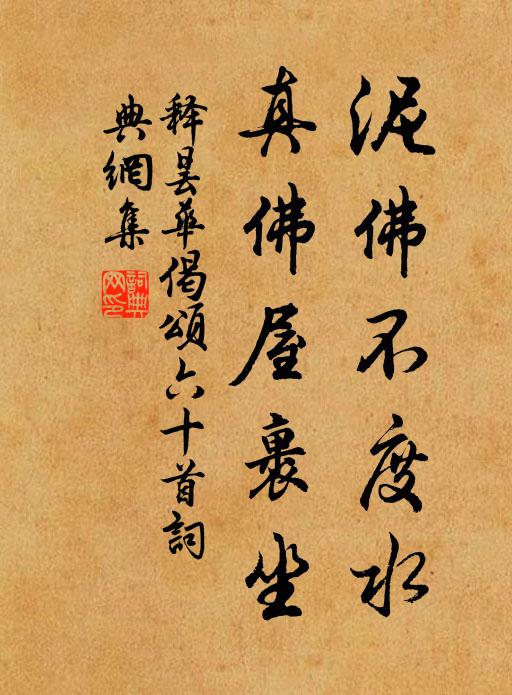 泥佛不度水
真佛屋裏坐
释曇華偈頌六十首詞
典網集
詞典
网印